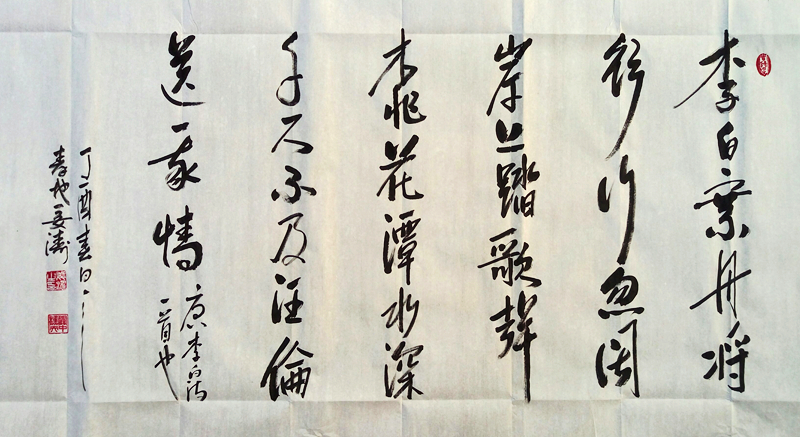 李白乘舟将
欲行忽闻
岸上踏歌聲
桃花潭水深
千尺不及汪倫
送我情
唐李白诗
一首也
丁酉春日